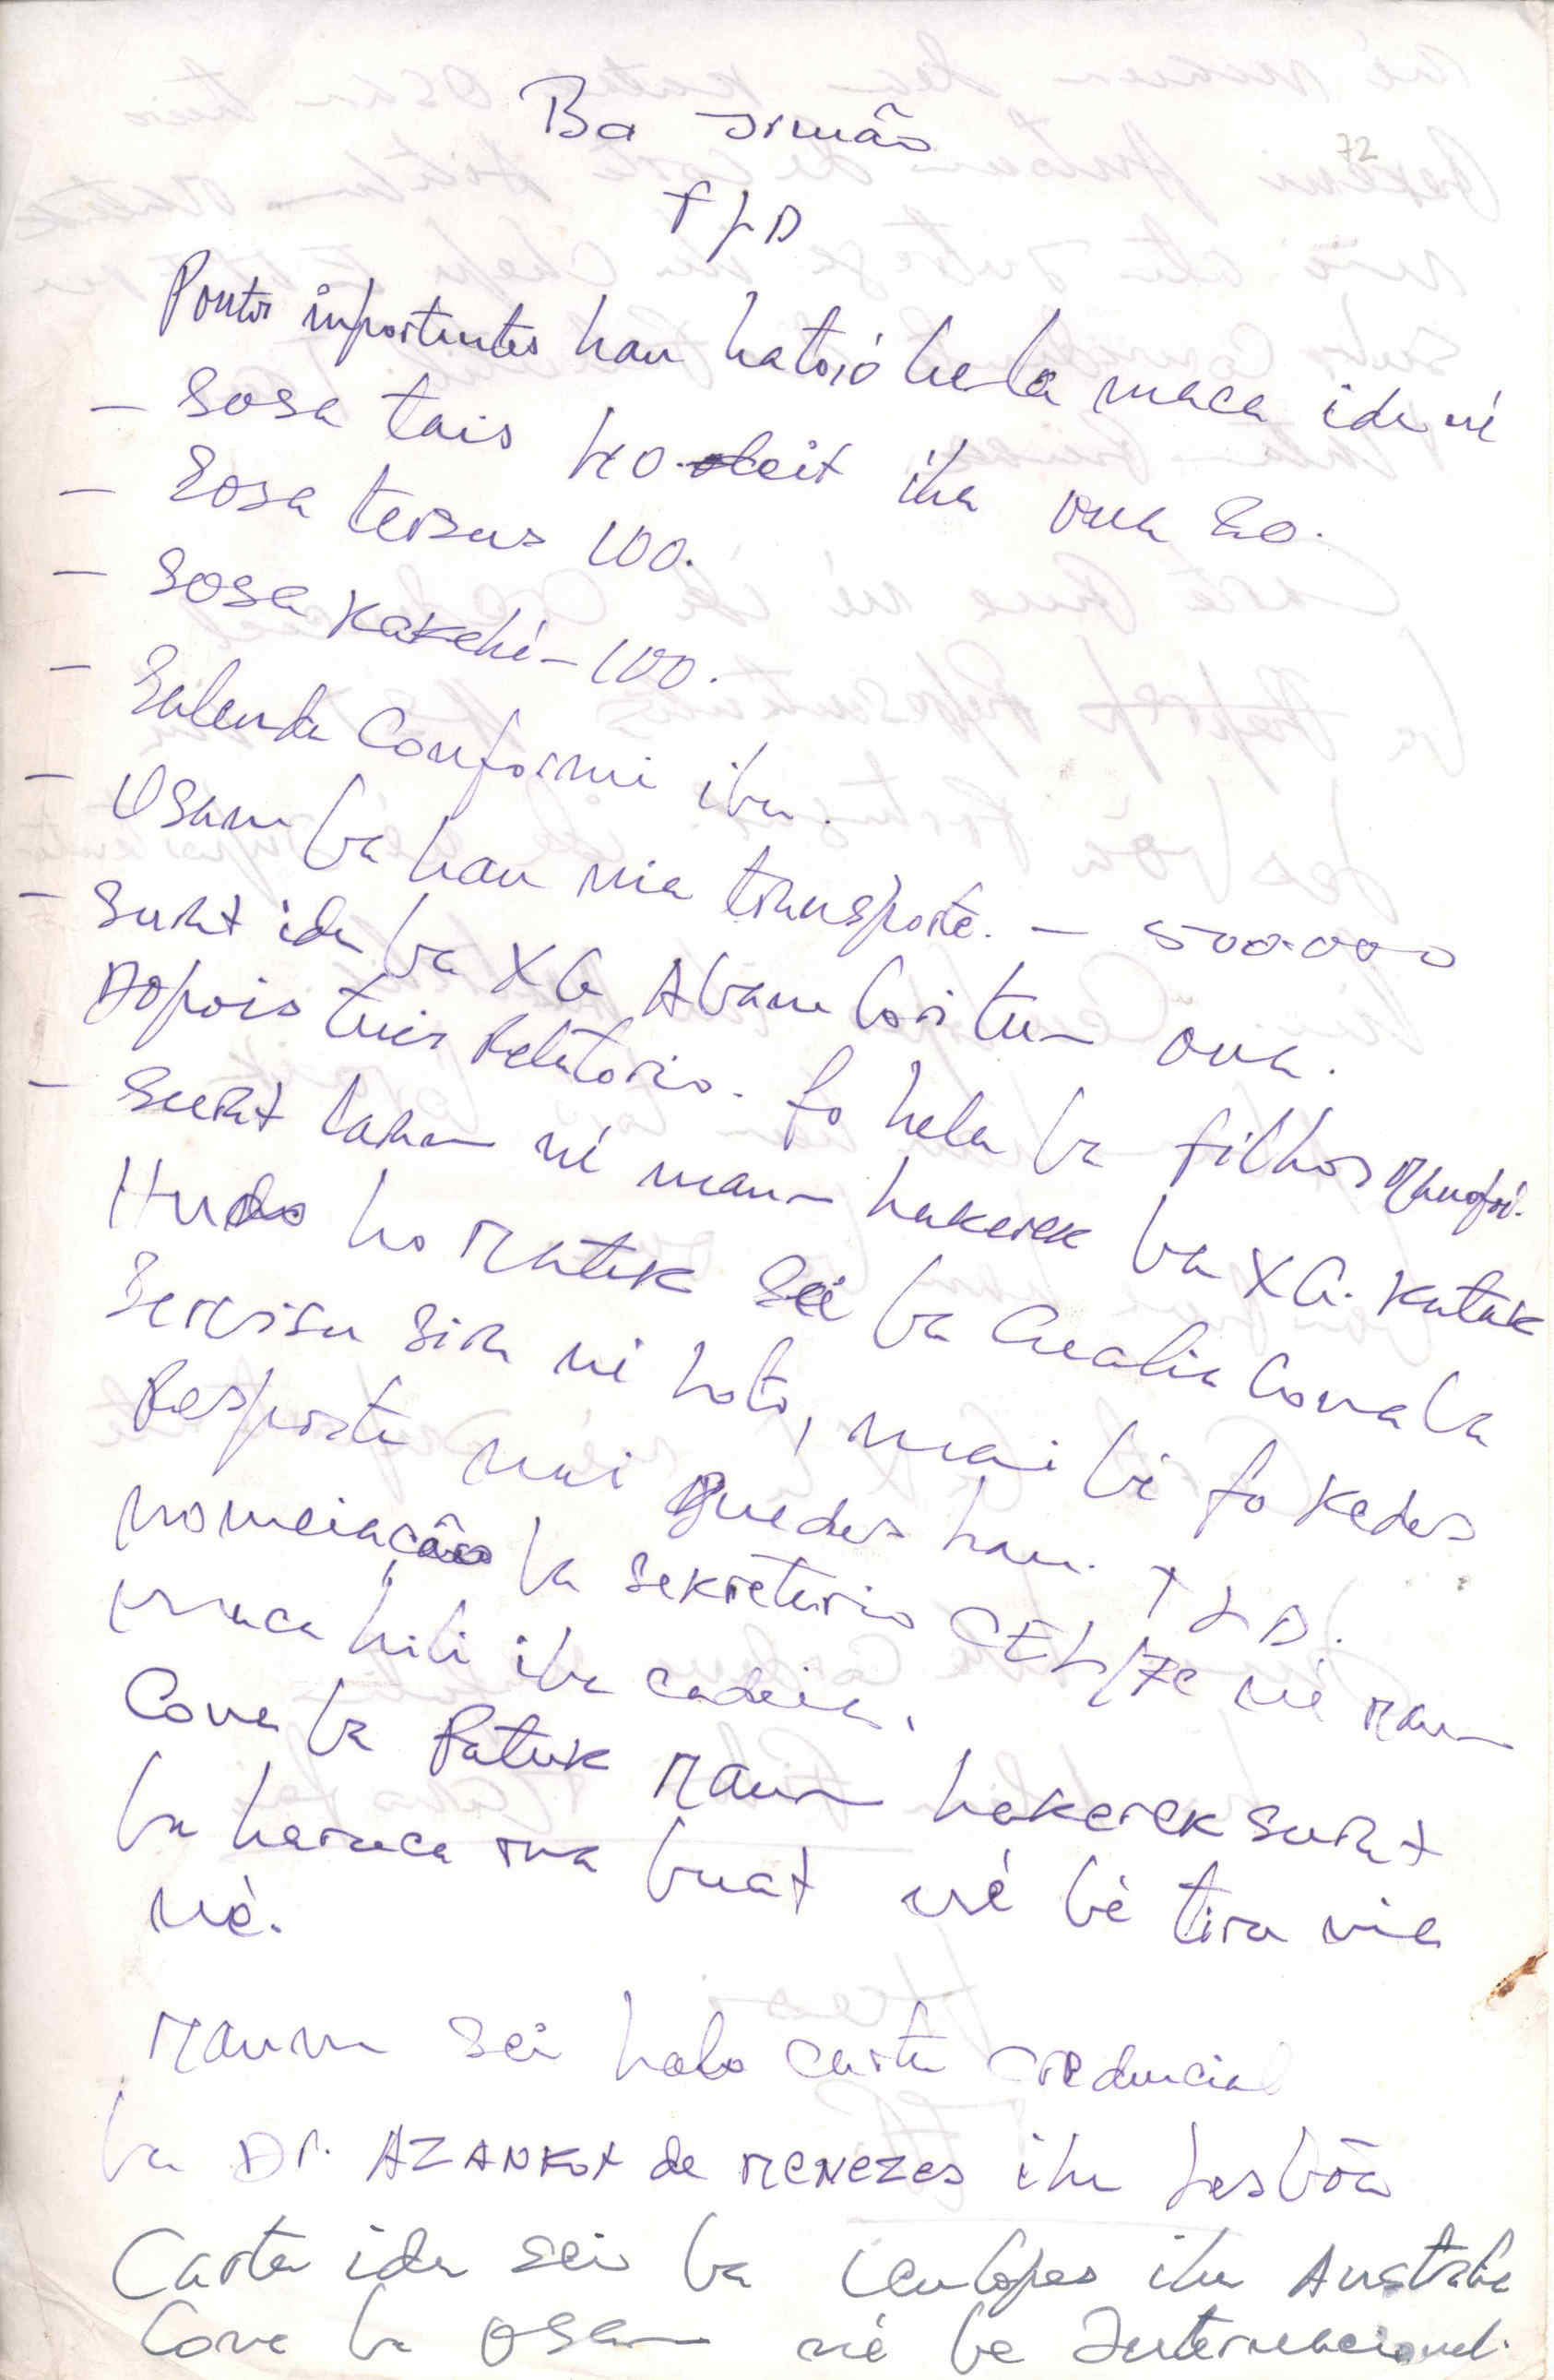 Ba Simão
72
T L D
Pontos inportantes hau hatoió hela maca ida né
- Sosa tais ho leit iha rua 20.
- Sosa tersus 100.
- Sosa Kakehé - 100.
- Salenda Conformi iha.
- Osam ba hau nia transporte. - 500.000
- Surat ida ba XG Abam bori tun rua.
Dopois tuir Relatorio. fo hela ba filhos Manofoi.
- Surat laran né maun hakerek ba XG. Katak
Hudo ho Matik Sei ba Cualia Cona ba
Servisu sira né hoto, mai bé fo Kedes
Resposta mai Guedes hau. T L D.
nomeiacão ba sekretario CEL/FC né maun
maca hili iha cadeia.
Cona ba Ratuk Maun hakerek surat
ba haruca rua buat né bé tira nia
né.
Maum sei halo carta creduncial
ba Dr. AZANKOT de MENEZES iha Lesbõa
Carta ida sei ba Lemlopes iha Australia
Cona ba Osam né be Internacional.